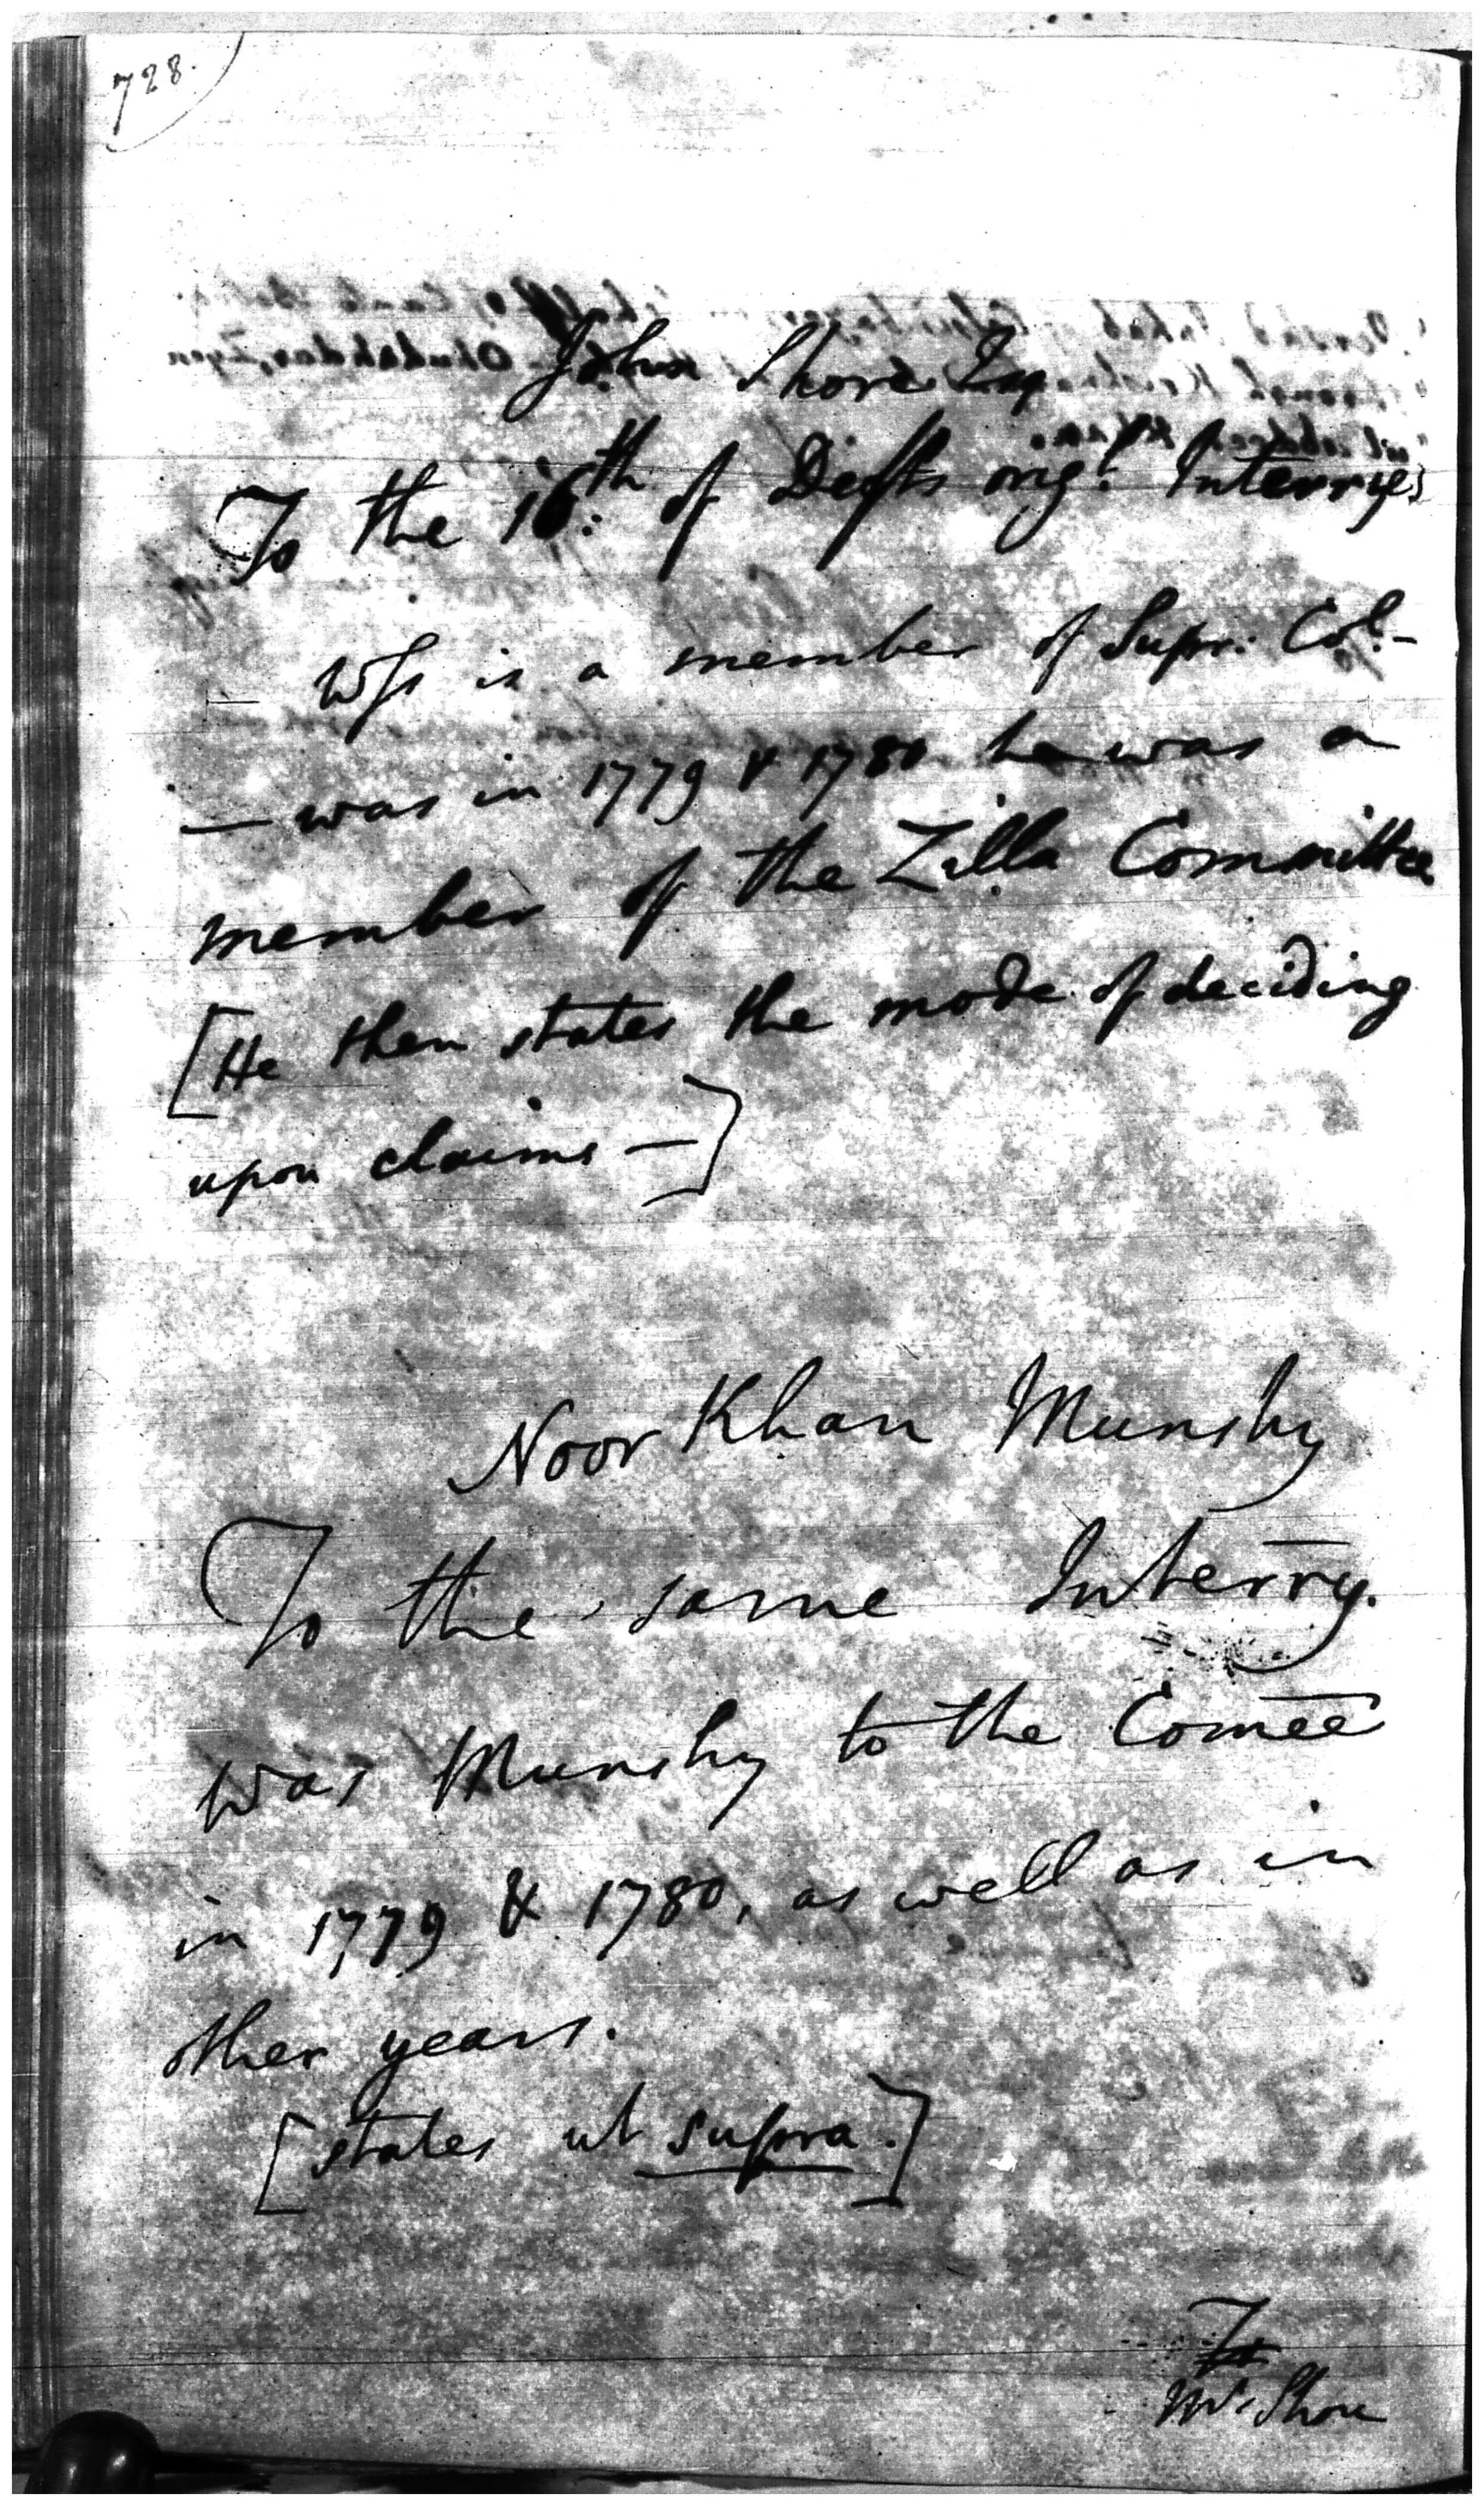 728.
John Shore Esq
To the 16th. of Defts orig! Interrys
— Wss is a member of Supr: Col. —
— was in 1779 & 1780 he was a
member of the Zilla Committee
[He then states the mode of deciding
upon claims —]
Noor Khan Munshy
To the same Interry.
was Munshy to the Comee
in 1779 & 1780, as well as in
other years.
[states ut supra.]
Mr. Shore